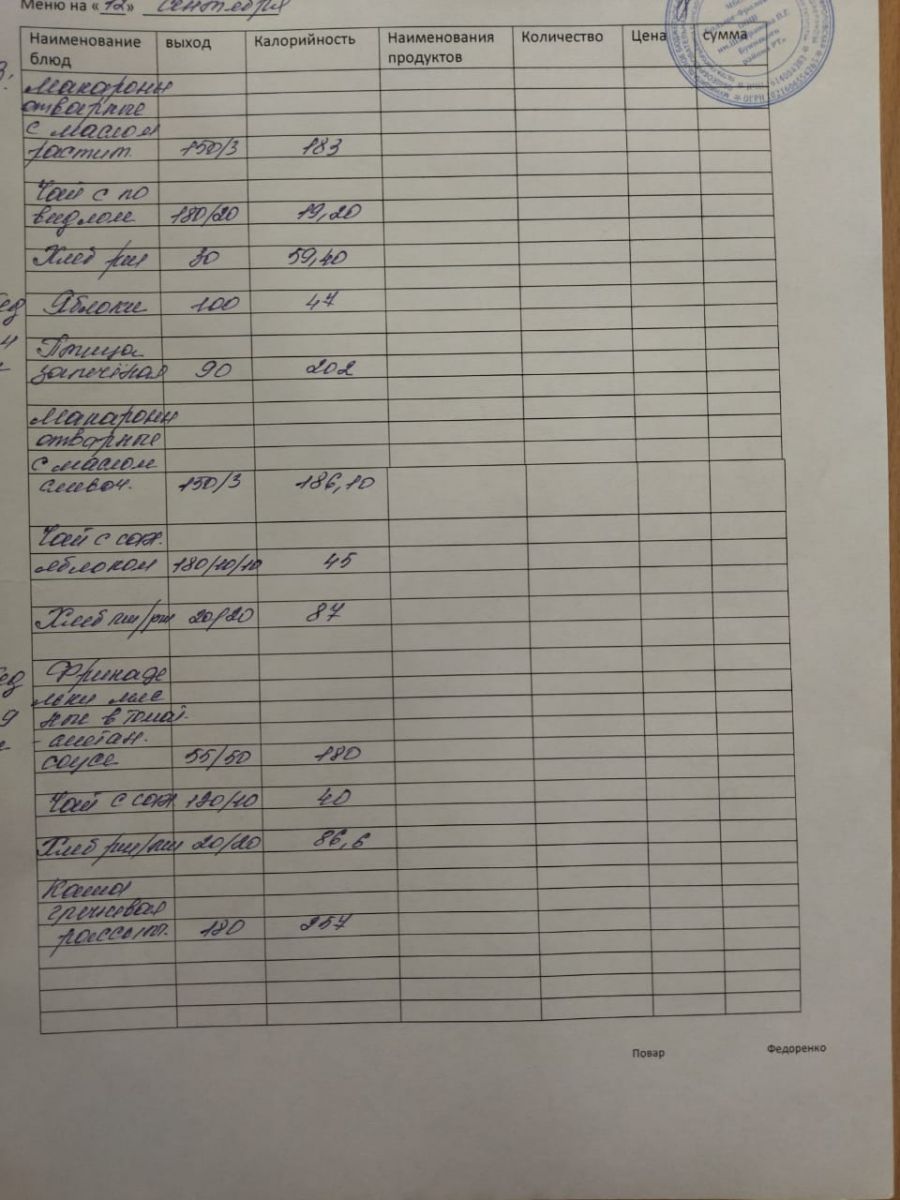 Меню на «12» сентября
Наименование блюд выход Калорийность Наименования продуктов Количество Цена сумма
Макароны
отварные
с маслом
растит. 150/3 183
Чай с по
видлом 180/20 19,20
Хлеб рж 30 59,40
Яблоки 100 47
Птица
запечёная 90 202
Макароны
отварные
с маслом
сливоч. 150/3 186,10
Чай с сах.
яблоком 180/10/10 45
Хлеб пш/рж 20/20 87
Фрикаде
льки мяс
ные в томат.
-сметан.
соусе 55/50 180
Чай с сах 180/10 40
Хлеб рж/пш 20/20 86,6
Каша
гречневая
рассып. 180 257
Повар Федоренко